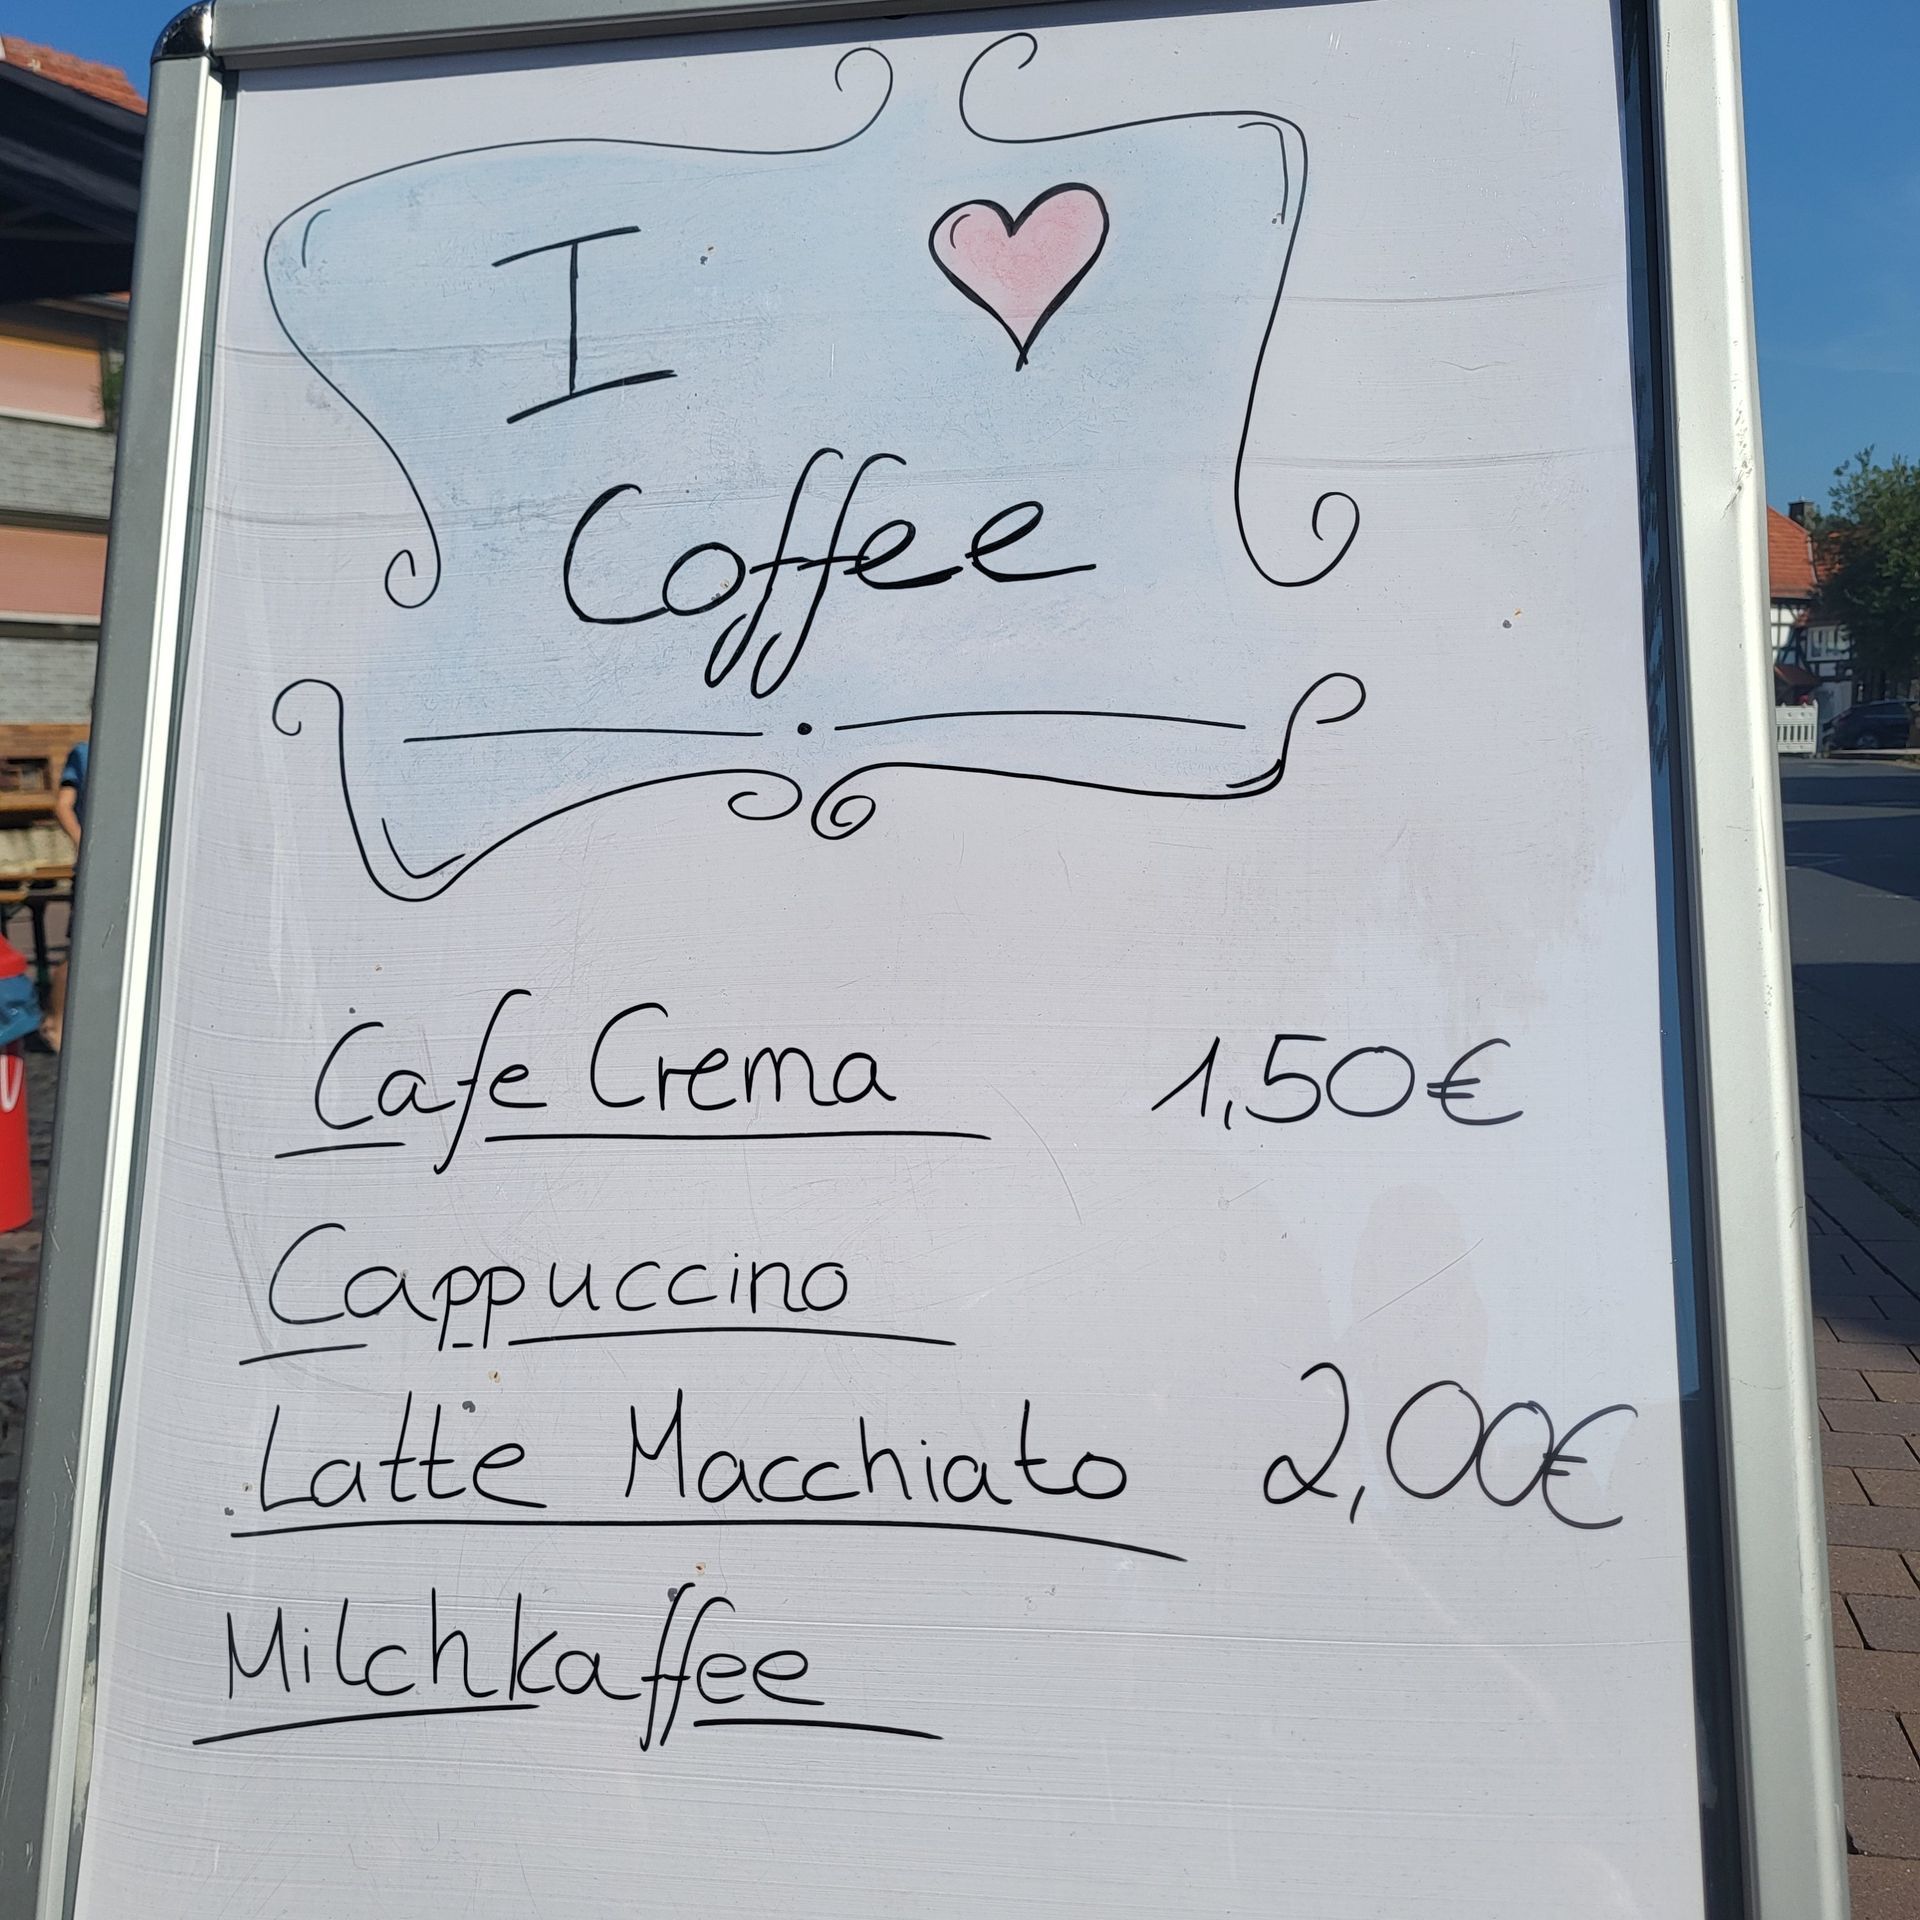 I ♥
Coffee
Cafe Crema 1,50€
Cappuccino
Latte Macchiato 2,00€
Milchkaffee